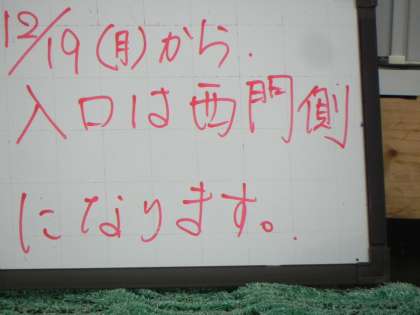 12/19(月)から.
入口は西門側
になります。